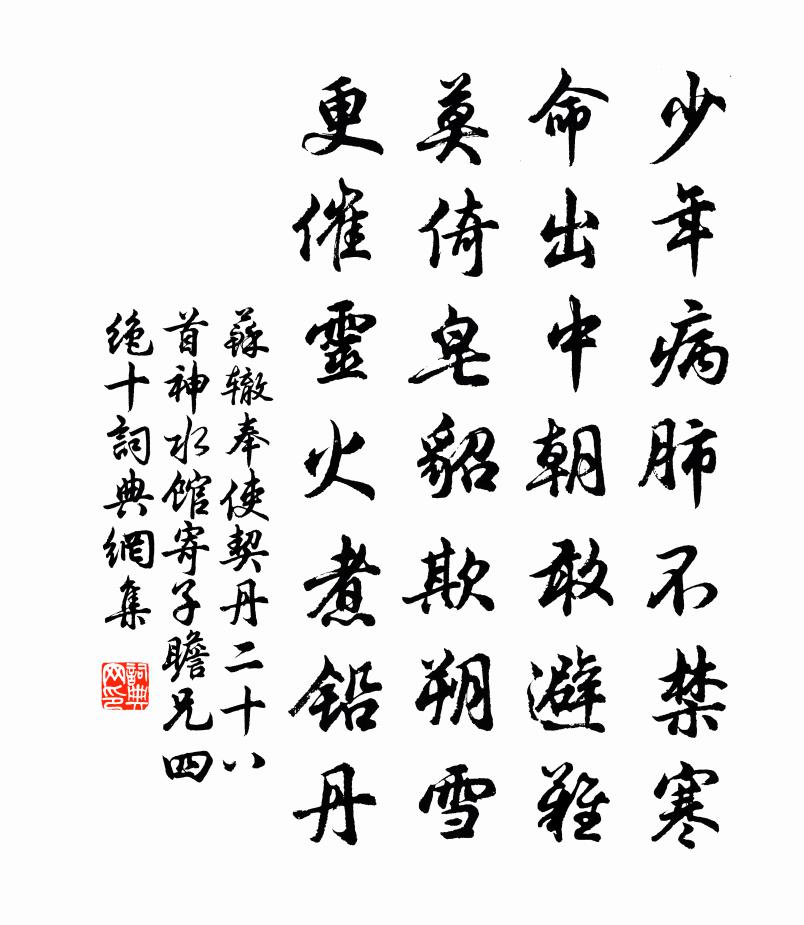 少年病肺不禁寒
命出中朝敢避難
莫倚皂貂欺朔雪
更催靈火煮铅丹
蘇辙奉使契丹二十八
首神水館寄子瞻兄四
绝十詞典網集
詞典
网印